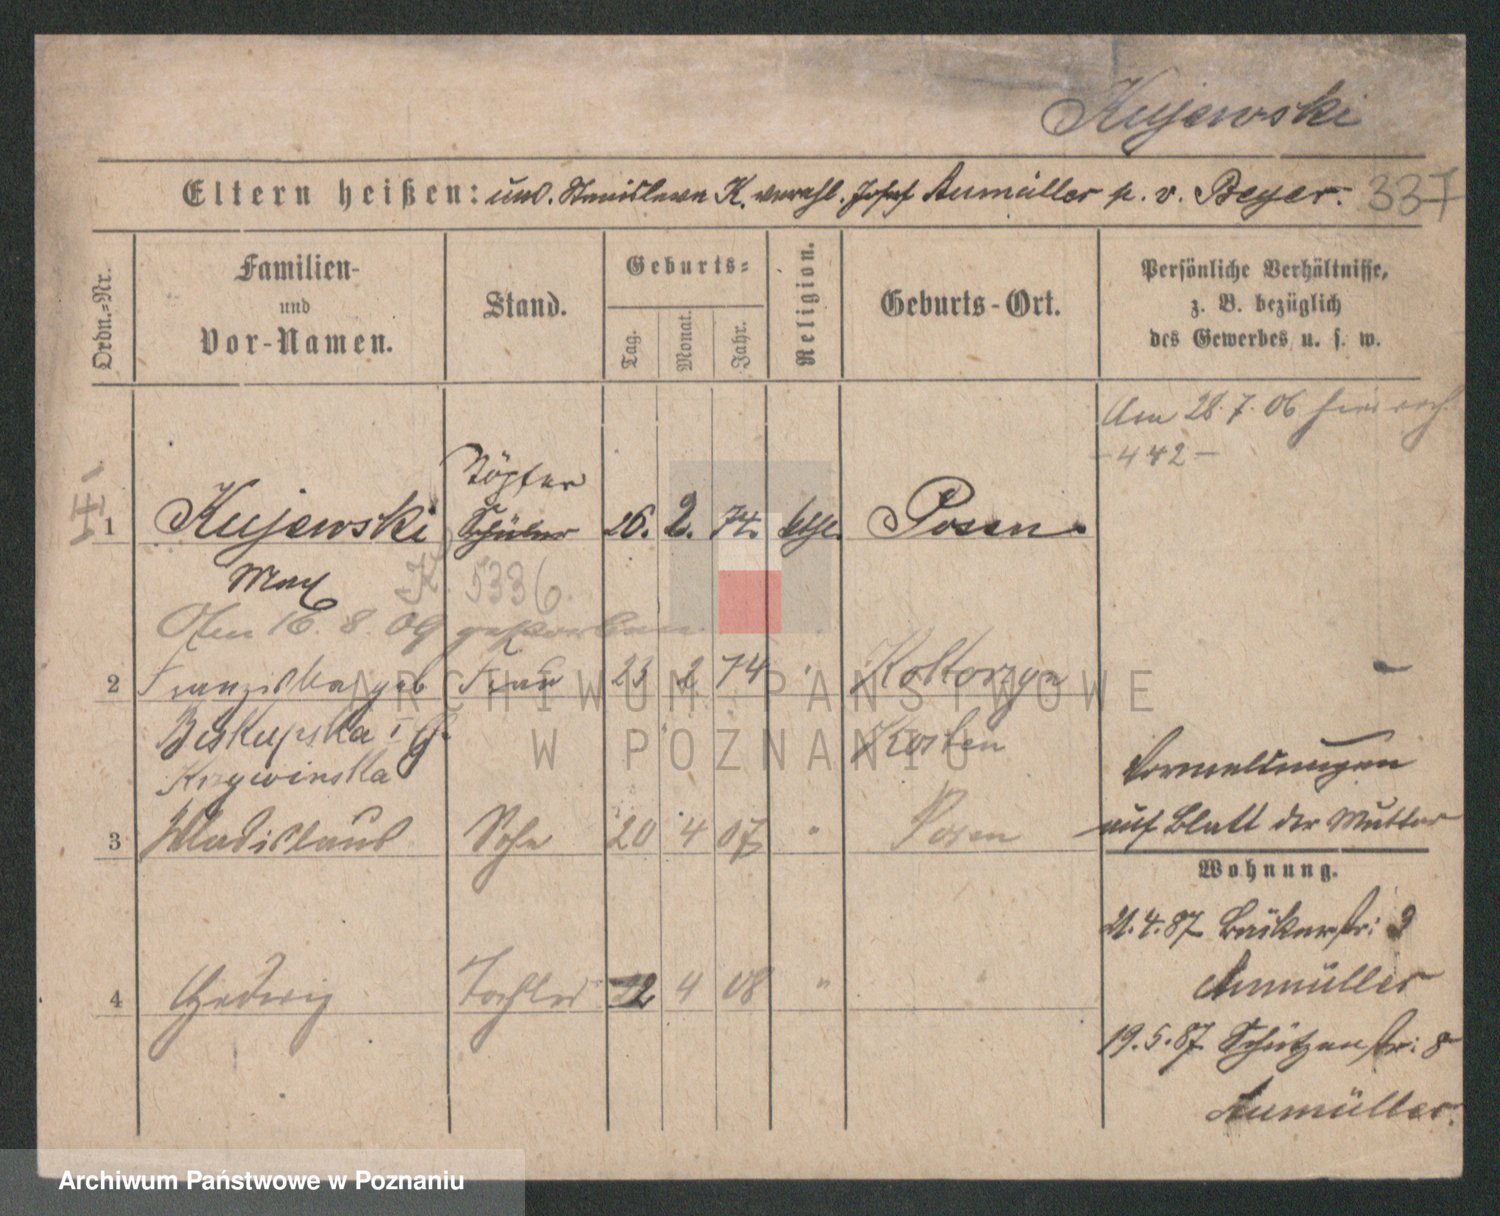 Kujawski
Eltern heißen: und. Stanislawa K. verehl. Josef Aumüller p. v. Beyer. 337
Ordn.-Nr.
Familien- und Vor-Namen.
Stand.
Geburts-
Tag.
Monat.
Jahr.
Religion.
Geburts-Ort.
Persönliche Verhältnisse,
z. B. bezüglich
des Gewerbes u. s. w.
Am 28.7.06
- 442 -
Töpfer
1 Kujawski Schüler 26. 2. 74. kth. Posen.
Max K. 5336.
16. 8. 09 gestorben
2 Franziska geb Frau 23 2 74 "
Biskupska Kosten
Krzywinska
3 Wladislaus Sohn 20 4 07 " Posen
4 Hedwig Tochter 12 4 08 " "
auf Blatt der Mutter
Wohnung.
21.4.87 Bäckerstr: 3
Aumüller
19.5.87. Schützenstr: 8
Aumüller.
ARCHIWUM PAŃSTWOWE
W POZNANIU
Archiwum Państwowe w Poznaniu